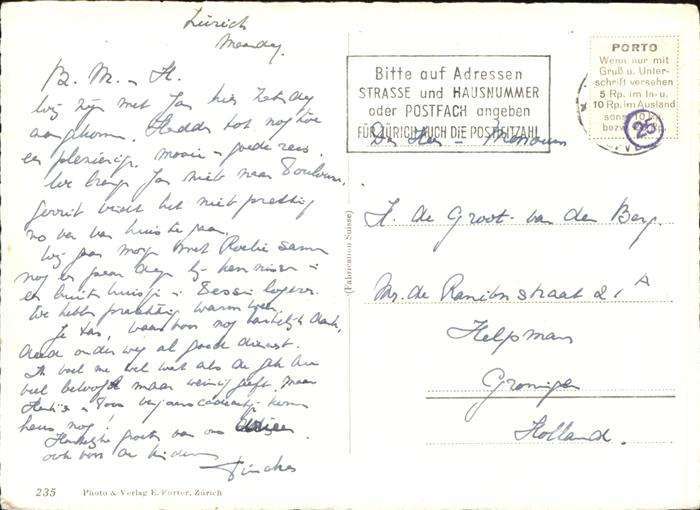 Zürich
Maandag.
B. M. - H.
Wij zijn met Jan hier Zaterdag
aangekomen. Hadden tot nog toe
een plezierige, mooie en goede reis.
We Jan niet naar
Gerrit vindt het niet prettig
zo ver van huis te gaan.
Wij gaan morgen met samen
nog een paar dagen bij kennissen in
een buitenhuisje in logeren.
We hebben prachtig warm weer.
Je tas, waarvoor nog hartelijk dank,
deed onderweg al goede dienst.
Ik voel me wel wat als de gek die
veel belooft maar weinig geeft. Maar
verjaarscadeautje komen
heus nog!
Hartelijke groeten van ons
ook voor de kinderen
235
Photo & Verlag E. Porter, Zürich
(Fabrication Suisse)
Bitte auf Adressen
STRASSE und HAUSNUMMER
oder POSTFACH angeben
FÜR ZÜRICH AUCH DIE POSTLEITZAHL
PORTO
Wenn nur mit
Gruß u. Unter-
schrift versehen
5 Rp. im In- u.
10 Rp. im Ausland
sonst 10
bezw.
2b
De Heer - Mevrouw
H. de Groot - van den Berg.
Mr. de Ranitzstraat 21A
Helpman
Groningen
Holland.